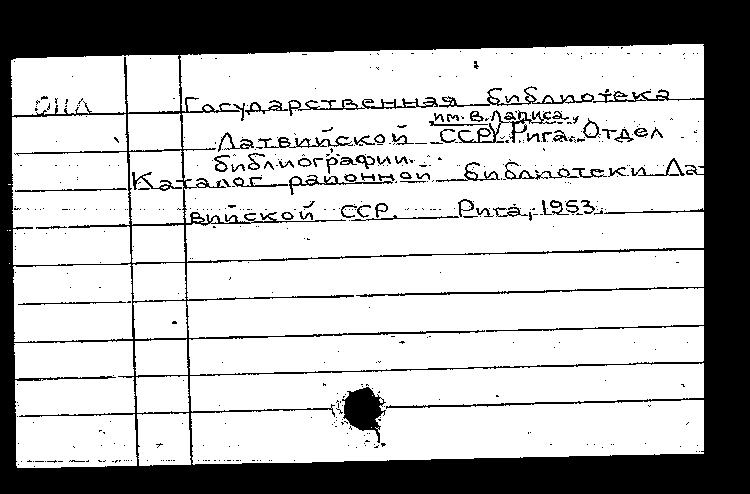 ОИЛ
Государственная библиотека
им. В. Лациса,
Латвийской ССР, Рига. Отдел
библиографии.
Каталог районной библиотеки Лат
вийской ССР. Рига, 1953.